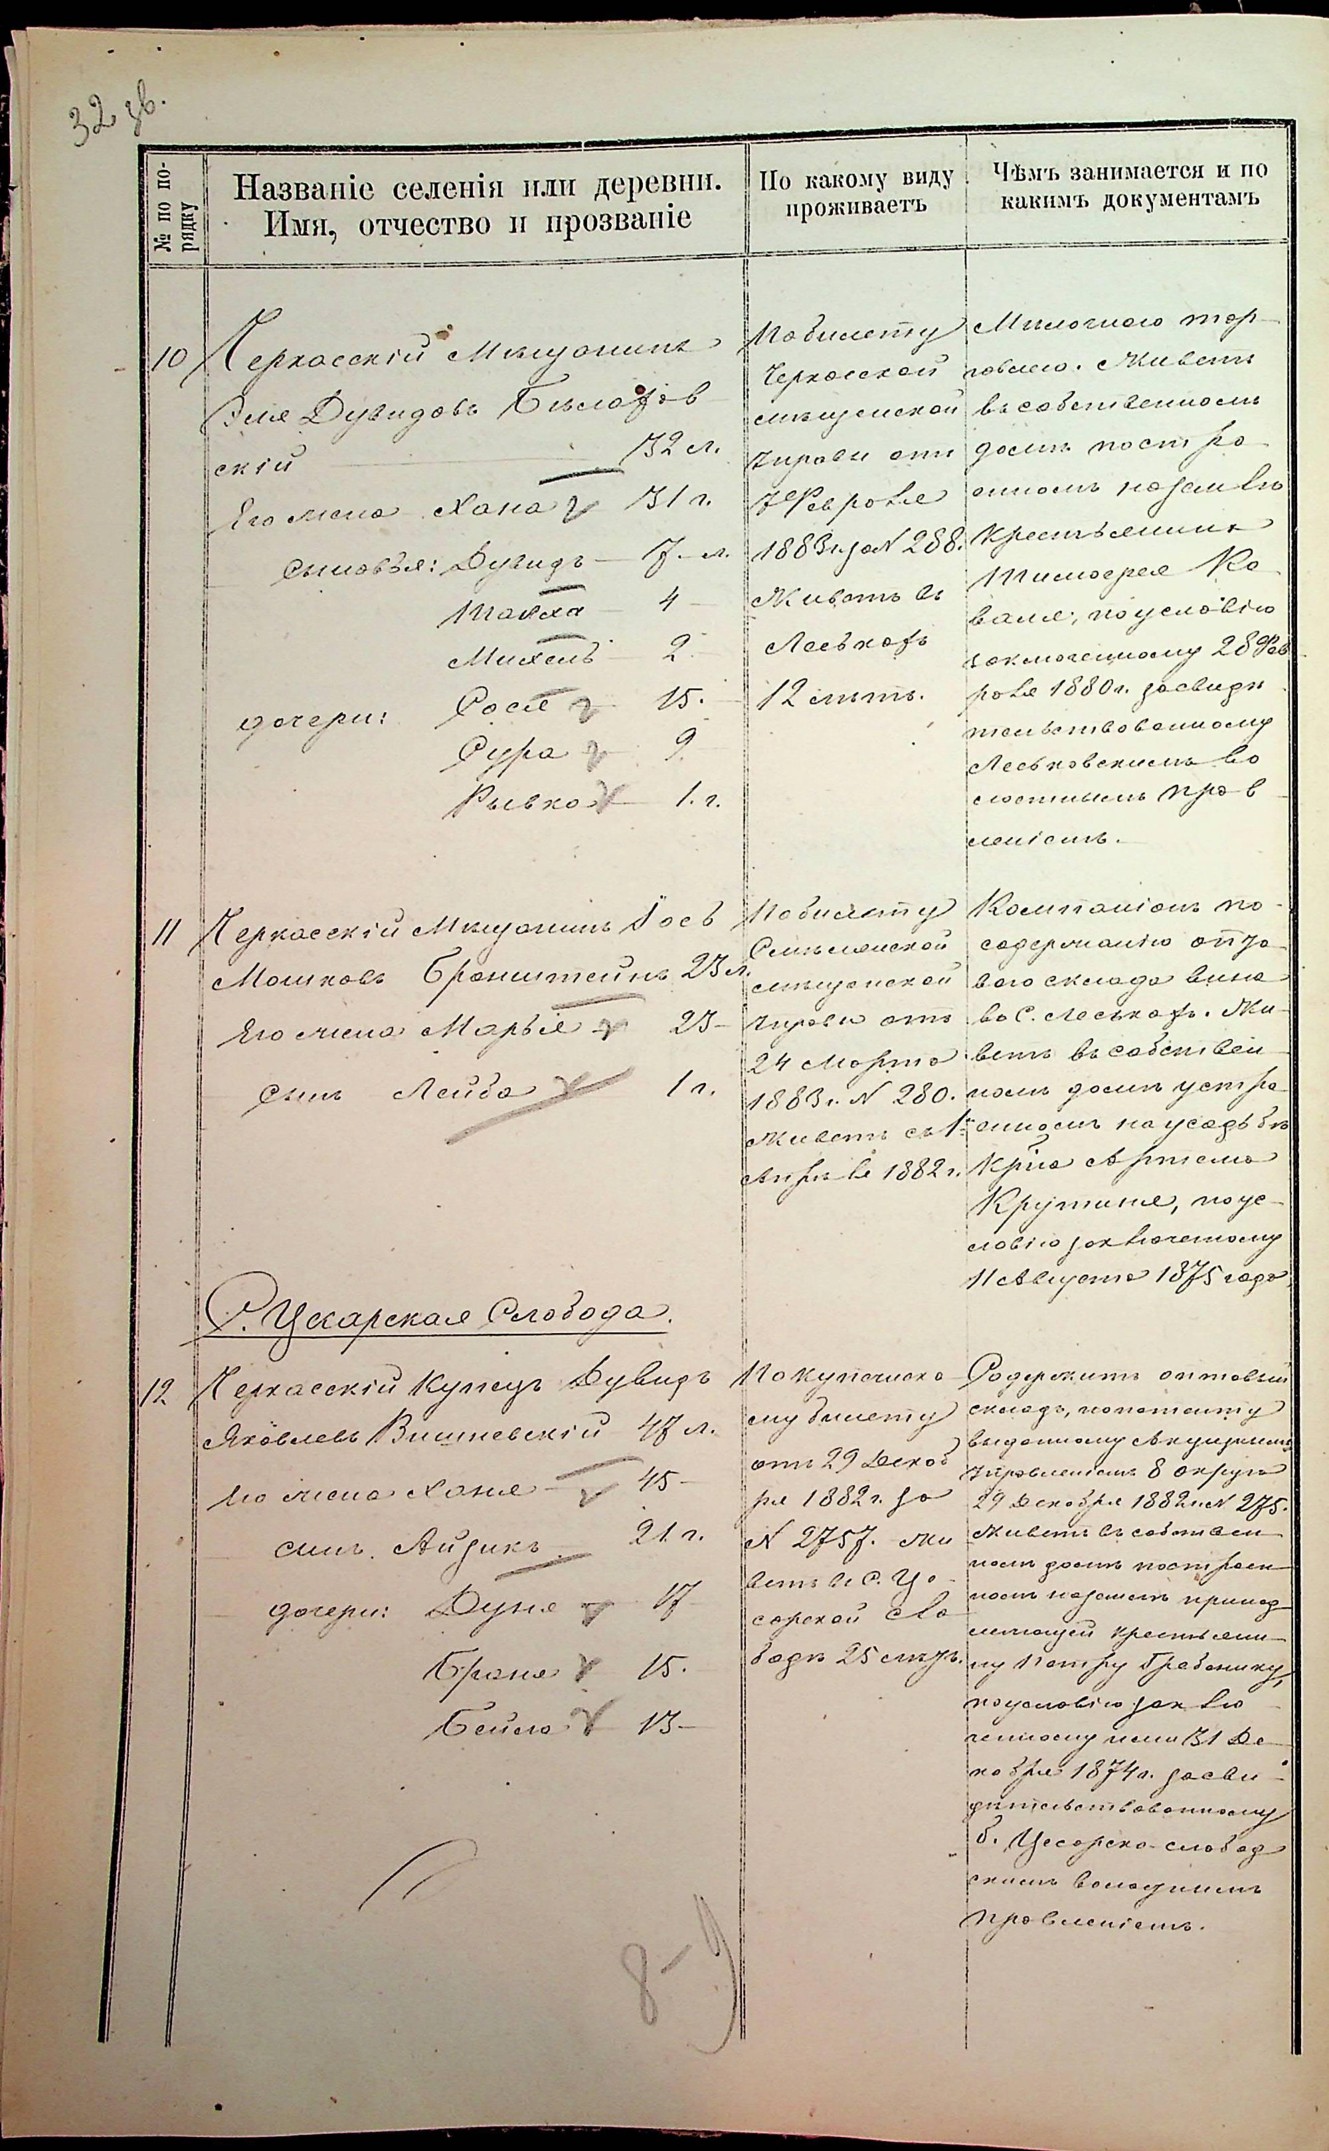 32 зв.
№ по по-
рядку
Названіе селенія или деревни.
Имя, отчество и прозваніе
По какому виду
проживаетъ
Чѣмъ занимается и по
какимъ документамъ
10
Черкасскій Мѣщанинъ
Эля Дувидовъ Бѣлазов
скій 32 л.
Его жена Хана 31 г.
сыновья: Дувидъ 7 л.
4
Михель 2
дочери: Сося 15.
Сура 9
Рывка 1. г.
По билету
Черкасской
мѣщанской
управы отъ
7 Февраля
1883 г. за № 288.
Живетъ въ
Леськахъ
12 лѣтъ.
Мелочною тор-
говлею. Живетъ
въ собственномъ
домѣ построе
нномъ на землѣ
Крестьянина
Тимофея Ко
валя, по условію
заключенному 28 Фев
раля 1880 г. засвидѣ
тельствованному
Леськовскимъ Во
лостнымъ прав
леніемъ.
11
Черкасскій Мѣщанинъ Іось
Мошковъ Бронштейнъ 23 л.
Его жена Марья 23
сынъ Лейба 1 г.
По билету
Смѣлянской
мѣщанской
управы отъ
24 Марта
1883 г. № 280.
Живетъ съ 1-
Апрѣля 1882 г.
Компаніонъ по
содержанію опто
ваго склада вина
въ С. Леськахъ. Жи-
ветъ въ собствен
номъ домѣ устро
енномъ на усадьбѣ
Кр-на Артема
по ус-
ловію заключенному
11 Августа 1875 года
С. Цесарская Слобода.
12
Черкасскій Купецъ Дувидъ
Яковлевъ Вишневскій 47 л.
Его жена Ханя 45
сынъ Айзикъ 21 г.
дочери: Дуня 17
Браня 15.
Бейла 13
По купческо
му билету
отъ 29 Декаб
ря 1882 г. за
№ 2757. Жи
ветъ въ С. Це
сарской Сло
бодѣ 25 лѣтъ.
Содержитъ оптовый
складъ, по патенту
выданному Акцизнымъ
Управленіемъ 8 округа
29 Декабря 1882 г. № 275.
Живетъ въ собствен
номъ домѣ построен
номъ на землѣ принад
лежащей крестьяни
ну Петру Гребенику,
по условію заклю
ченному ими 31 Де
кабря 1874 г. засви
дѣтельствованному
б. Цесарско-слобод
скимъ волостнымъ
правленіемъ.
8-9